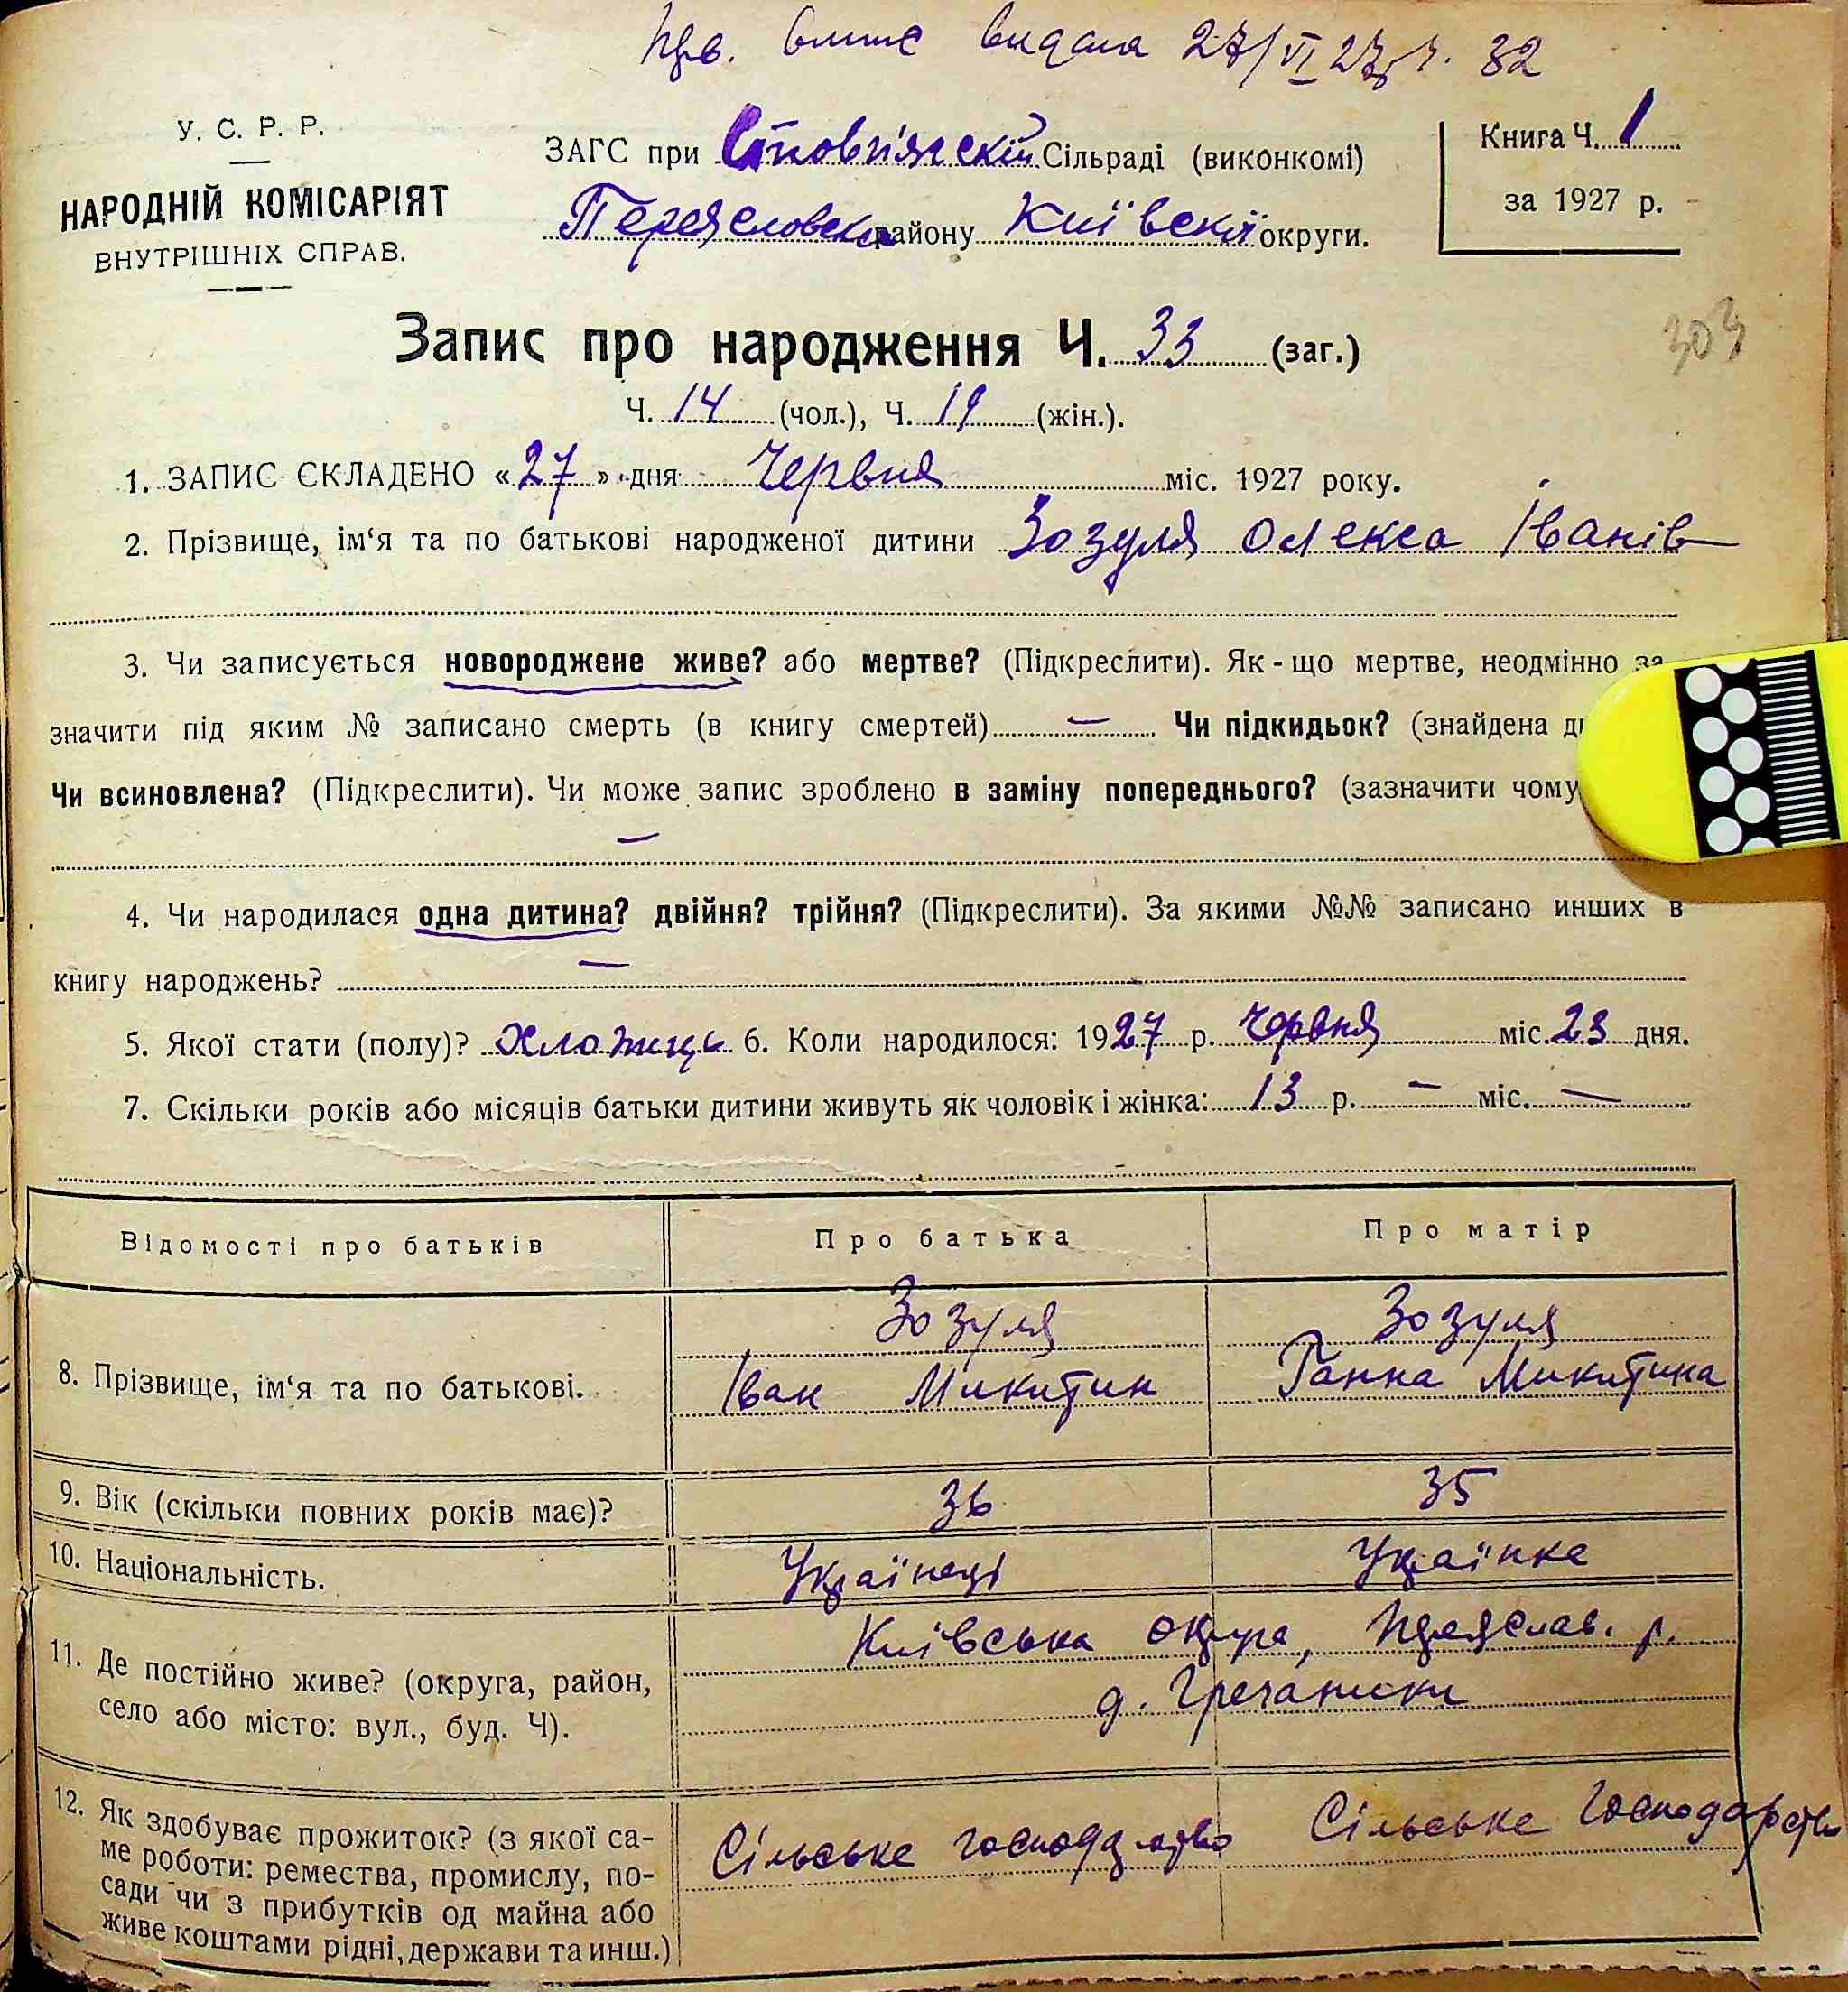 видала 27/VI 27 р. ч. 32
У. С. Р. Р.
НАРОДНІЙ КОМІСАРІЯТ
ВНУТРІШНІХ СПРАВ.
ЗАГС при Стовп'язскій Сільраді (виконкомі)
Переясловськ району Київскої округи.
Книга Ч. 1
за 1927 р.
303
Запис про народження Ч. 33 (заг.)
Ч. 14 (чол.), Ч. 19 (жін.).
1. ЗАПИС СКЛАДЕНО «27» дня Червня міс. 1927 року.
2. Прізвище, ім‘я та по батькові народженої дитини Зозуля Олекса Іванів
3. Чи записується новороджене живе? або мертве? (Підкреслити). Як-що мертве, неодмінно за-
значити під яким № записано смерть (в книгу смертей) — Чи підкидьок? (знайдена
Чи всиновлена? (Підкреслити). Чи може запис зроблено в заміну попереднього? (зазначити чому
—
4. Чи народилася одна дитина? двійня? трійня? (Підкреслити). За якими №№ записано инших в
книгу народжень? —
5. Якої стати (полу)? Хлопиць 6. Коли народилося: 1927 р. Червня міс. 23 дня.
7. Скільки років або місяців батьки дитини живуть як чоловік і жінка: 13 р. — міс. —
Відомості про батьків Про батька Про матір
8. Прізвище, ім‘я та по батькові. Зозуля Іван Микитин Зозуля Ганна Микитина
9. Вік (скільки повних років має)? 36 35
10. Національність. Українець Українка
11. Де постійно живе? (округа, район,
село або місто: вул., буд. Ч).
Київська округа, Переяслав. р.
д. Гречаники
12. Як здобуває прожиток? (з якої са-
ме роботи: ремества, промислу, по-
сади чи з прибутків од майна або
живе коштами рідні, держави та инш.)
Сільське господарство Сільське господарство